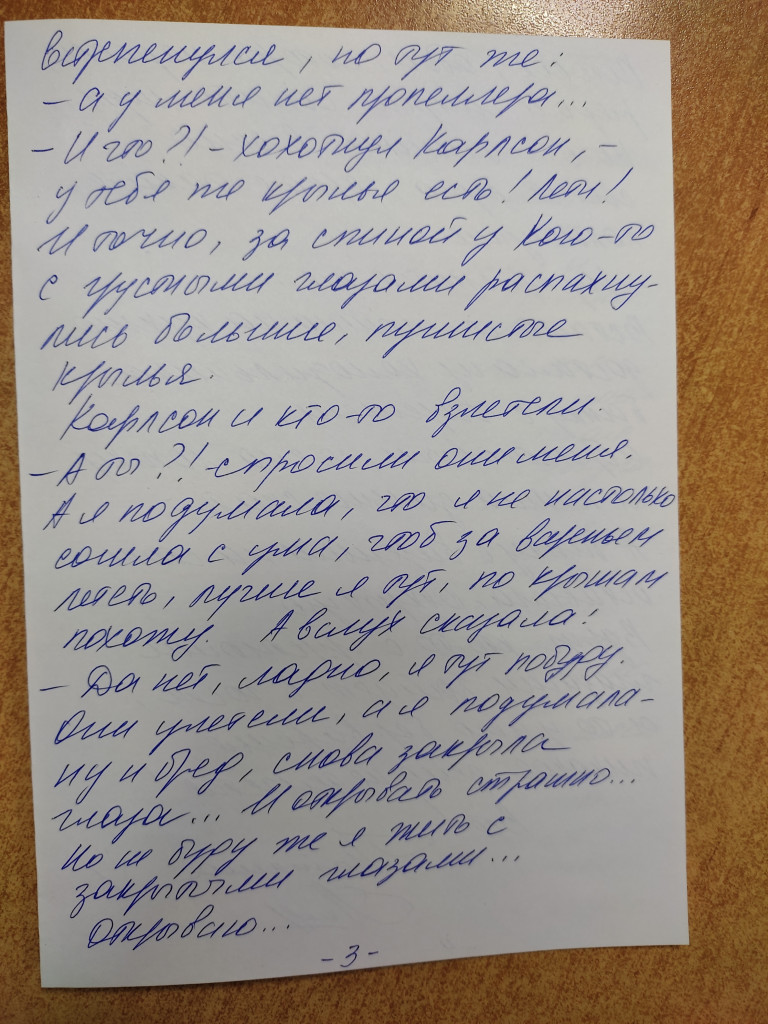 встрепенулся, но тут же:
- а у меня нет пропеллера...
- И что?! - хохотнул Карлсон, -
у тебя же крылья есть! Лети!
И точно, за спиной у Кого-то
с грустными глазами распахну-
лись большие, пушистые
крылья.
Карлсон и кто-то взлетели.
- А ты?! - спросили они меня.
А я подумала, что я не настолько
сошла с ума, чтоб за вареньем
лететь, лучше я тут, по крышам
похожу. А вслух сказала:
- Да нет, ладно, я тут побуду.
Они улетели, а я подумала -
ну и бред, снова закрыла
глаза... И открывать страшно...
Но не буду же я жить с
закрытыми глазами...
Открываю...
- 3 -